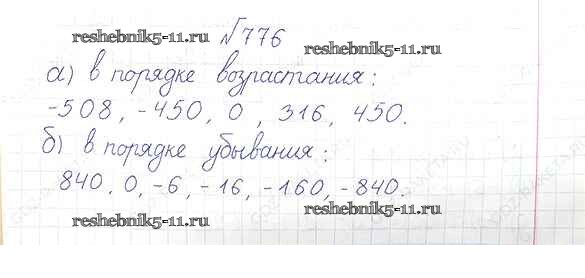 reshebnik5-11.ru
№776
reshebnik5-11.ru
а) в порядке возрастания:
-508, -450, 0, 316, 450.
б) в порядке убывания:
840, 0, -6, -16, -160, -840.
reshebnik5-11.ru
reshebnik5-11.ru